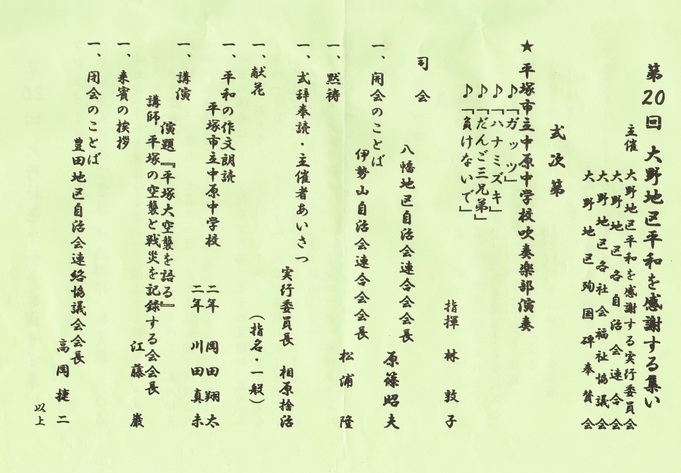 第20回 大野地区平和を感謝する集い
主催 大野地区平和を感謝する実行委員会
大野地区各自治会連合会
大野地区各社会福祉協議会
大野地区殉国碑奉賛会
式次第
★ 平塚市立中原中学校吹奏楽部演奏
♪「ガッツ」
♪「ハナミズキ」
♪「だんご三兄弟」
♪「負けないで」
指揮 林 敦子
司会 八幡地区自治会連合会会長 原篠昭夫
一、開会のことば
伊勢山自治会連合会会長 松浦 隆
一、黙祷
一、式辞奉読・主催者あいさつ
実行委員長 相原捨治
一、献花 (指名・一般)
一、平和の作文朗読
平塚市立中原中学校 二年 岡田翔太
二年 川田真未
一、講演 演題『平塚大空襲を語る』
講師 平塚の空襲と戦災を記録する会会長
江藤 巌
一、来賓の挨拶
一、閉会のことば
豊田地区自治会連絡協議会会長
高岡捷二
以上